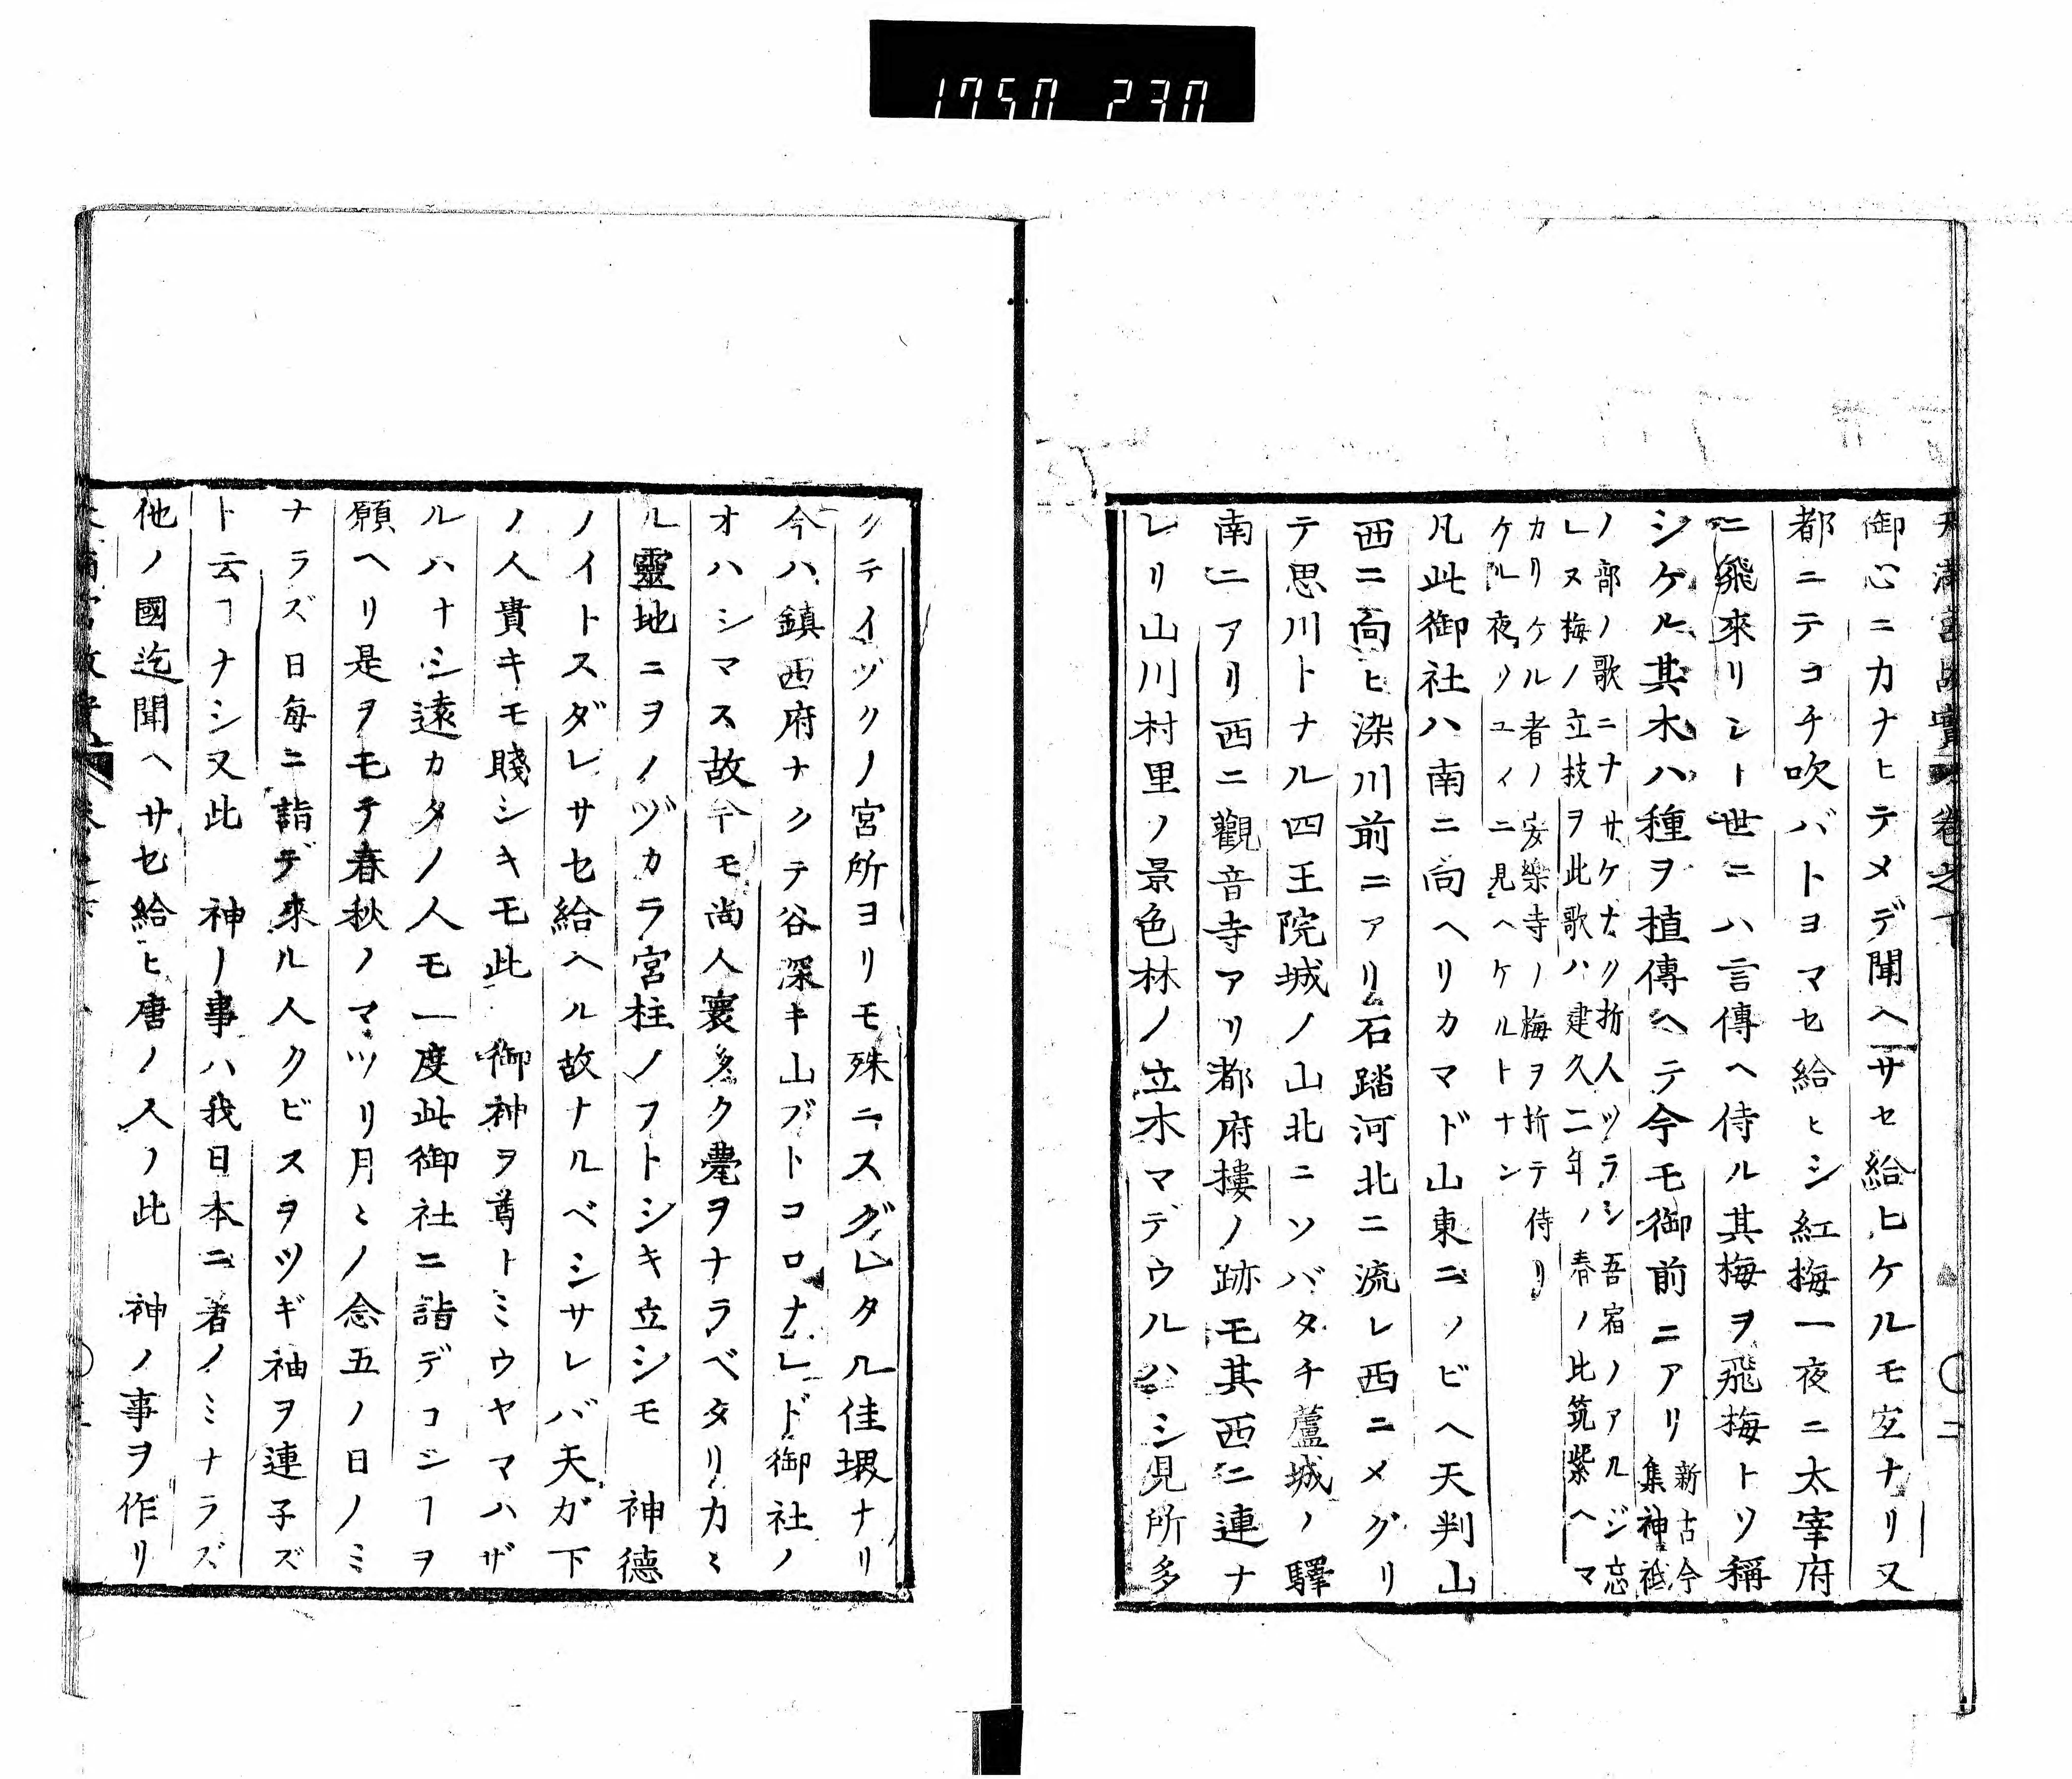 1750 230
御心ニカナヒテメデ聞ヘサセ給ヒケルモ空ナリ又
都ニテコチ吹バトヨマセ給ヒシ紅梅一夜ニ太宰府
ニ飛來リシト世ニハ言傳ヘ侍ル其梅ヲ飛梅トソ稱
シケル其木ハ種ヲ植傳ヘテ今モ御前ニアリ新古今
集神祇
ノ部ノ歌ニナサケナク折人ツラシ吾宿ノアルジ忘
レヌ梅ノ立枝ヲ此歌ハ建久二年ノ春ノ比筑紫ヘマ
カリケル者ノ安樂寺ノ梅ヲ折テ侍リ
ケル夜ノユイニ見ヘケルトナン
凡此御社ハ南ニ向ヘリカマド山東ニソビヘ天判山
西ニ向ヒ染川前ニアリ石踏河北ニ流レ西ニメグリ
テ思川トナル四王院城ノ山北ニソバタチ蘆城ノ驛
南ニアリ西ニ觀音寺アリ都府樓ノ跡モ其西ニ連ナ
レリ山川村里ノ景色林ノ立木マデウルハシ見所多
クテイヅクノ宮所ヨリモ殊ニスグレタル佳堺ナリ
今ハ鎮西府ナクテ谷深キ山フトコロナレド御社ノ
オハシマス故今モ尚人寰多ク甍ヲナラベタリカヽ
ル靈地ニヲノヅカラ宮柱ノフトシキ立シモ　神德
ノイトスダレサセ給ヘル故ナルベシサレバ天ガ下
ノ人貴キモ賤シキモ此　御神ヲ尊トミウヤマハザ
ルハナシ遠カタノ人モ一度此御社ニ詣デコシヿヲ
願ヘリ是ヲモテ春秋ノマツリ月々ノ念五ノ日ノミ
ナラズ日毎ニ詣デ來ル人クビスヲツギ袖ヲ連子ズ
ト云ヿナシ又此　神ノ事ハ我日本ニ著ノミナラズ
他ノ國迄聞ヘサセ給ヒ唐ノ人ノ此　神ノ事ヲ作リ